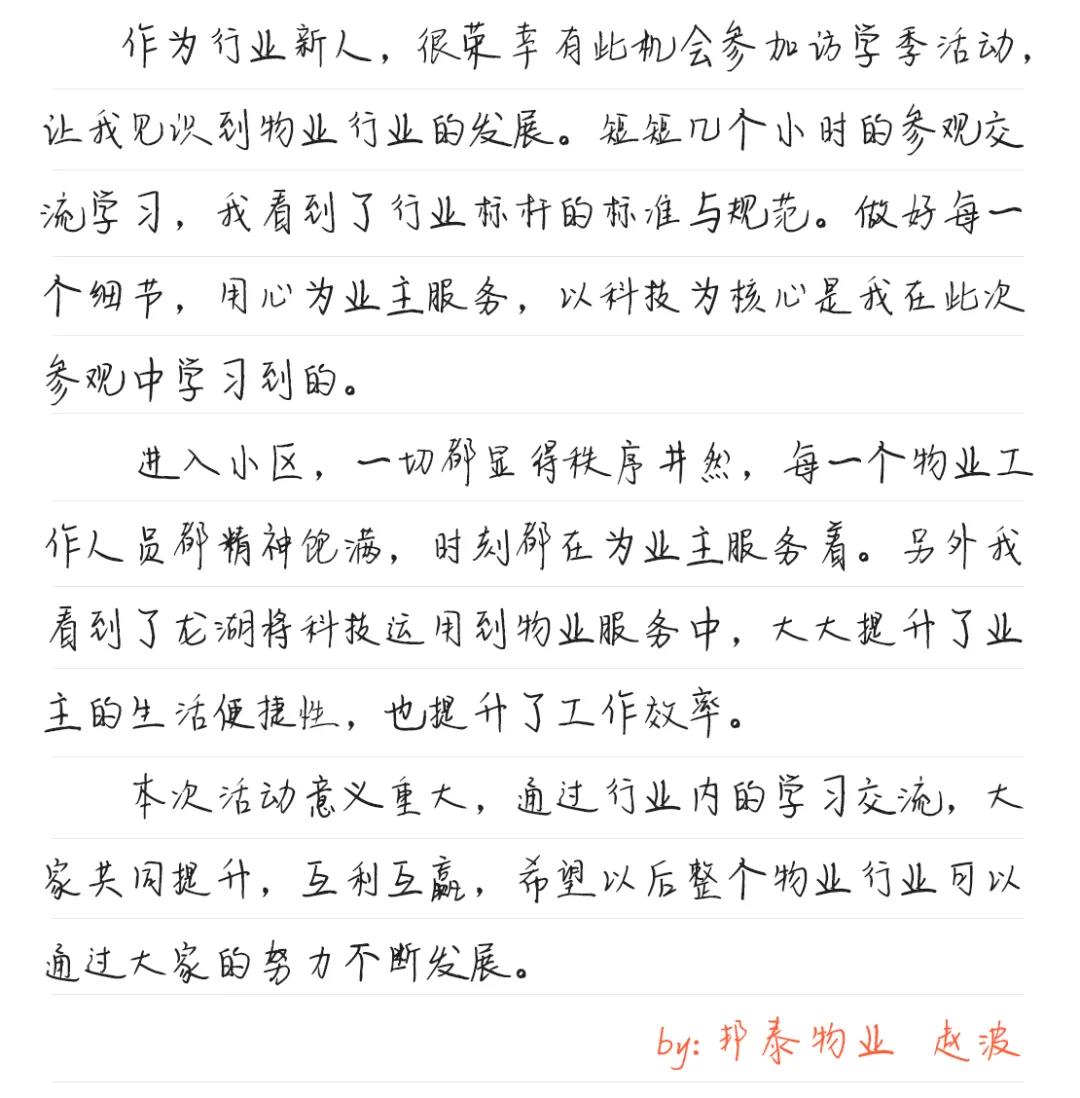 作为行业新人，很荣幸有此机会参加访学季活动，
让我见识到物业行业的发展。短短几个小时的参观交
流学习，我看到了行业标杆的标准与规范。做好每一
个细节，用心为业主服务，以科技为核心是我在此次
参观中学习到的。
进入小区，一切都显得秩序井然，每一个物业工
作人员都精神饱满，时刻都在为业主服务着。另外我
看到了龙湖将科技运用到物业服务中，大大提升了业
主的生活便捷性，也提升了工作效率。
本次活动意义重大，通过行业内的学习交流，大
家共同提升，互利互赢，希望以后整个物业行业可以
通过大家的努力不断发展。
by: 邦泰物业 赵波